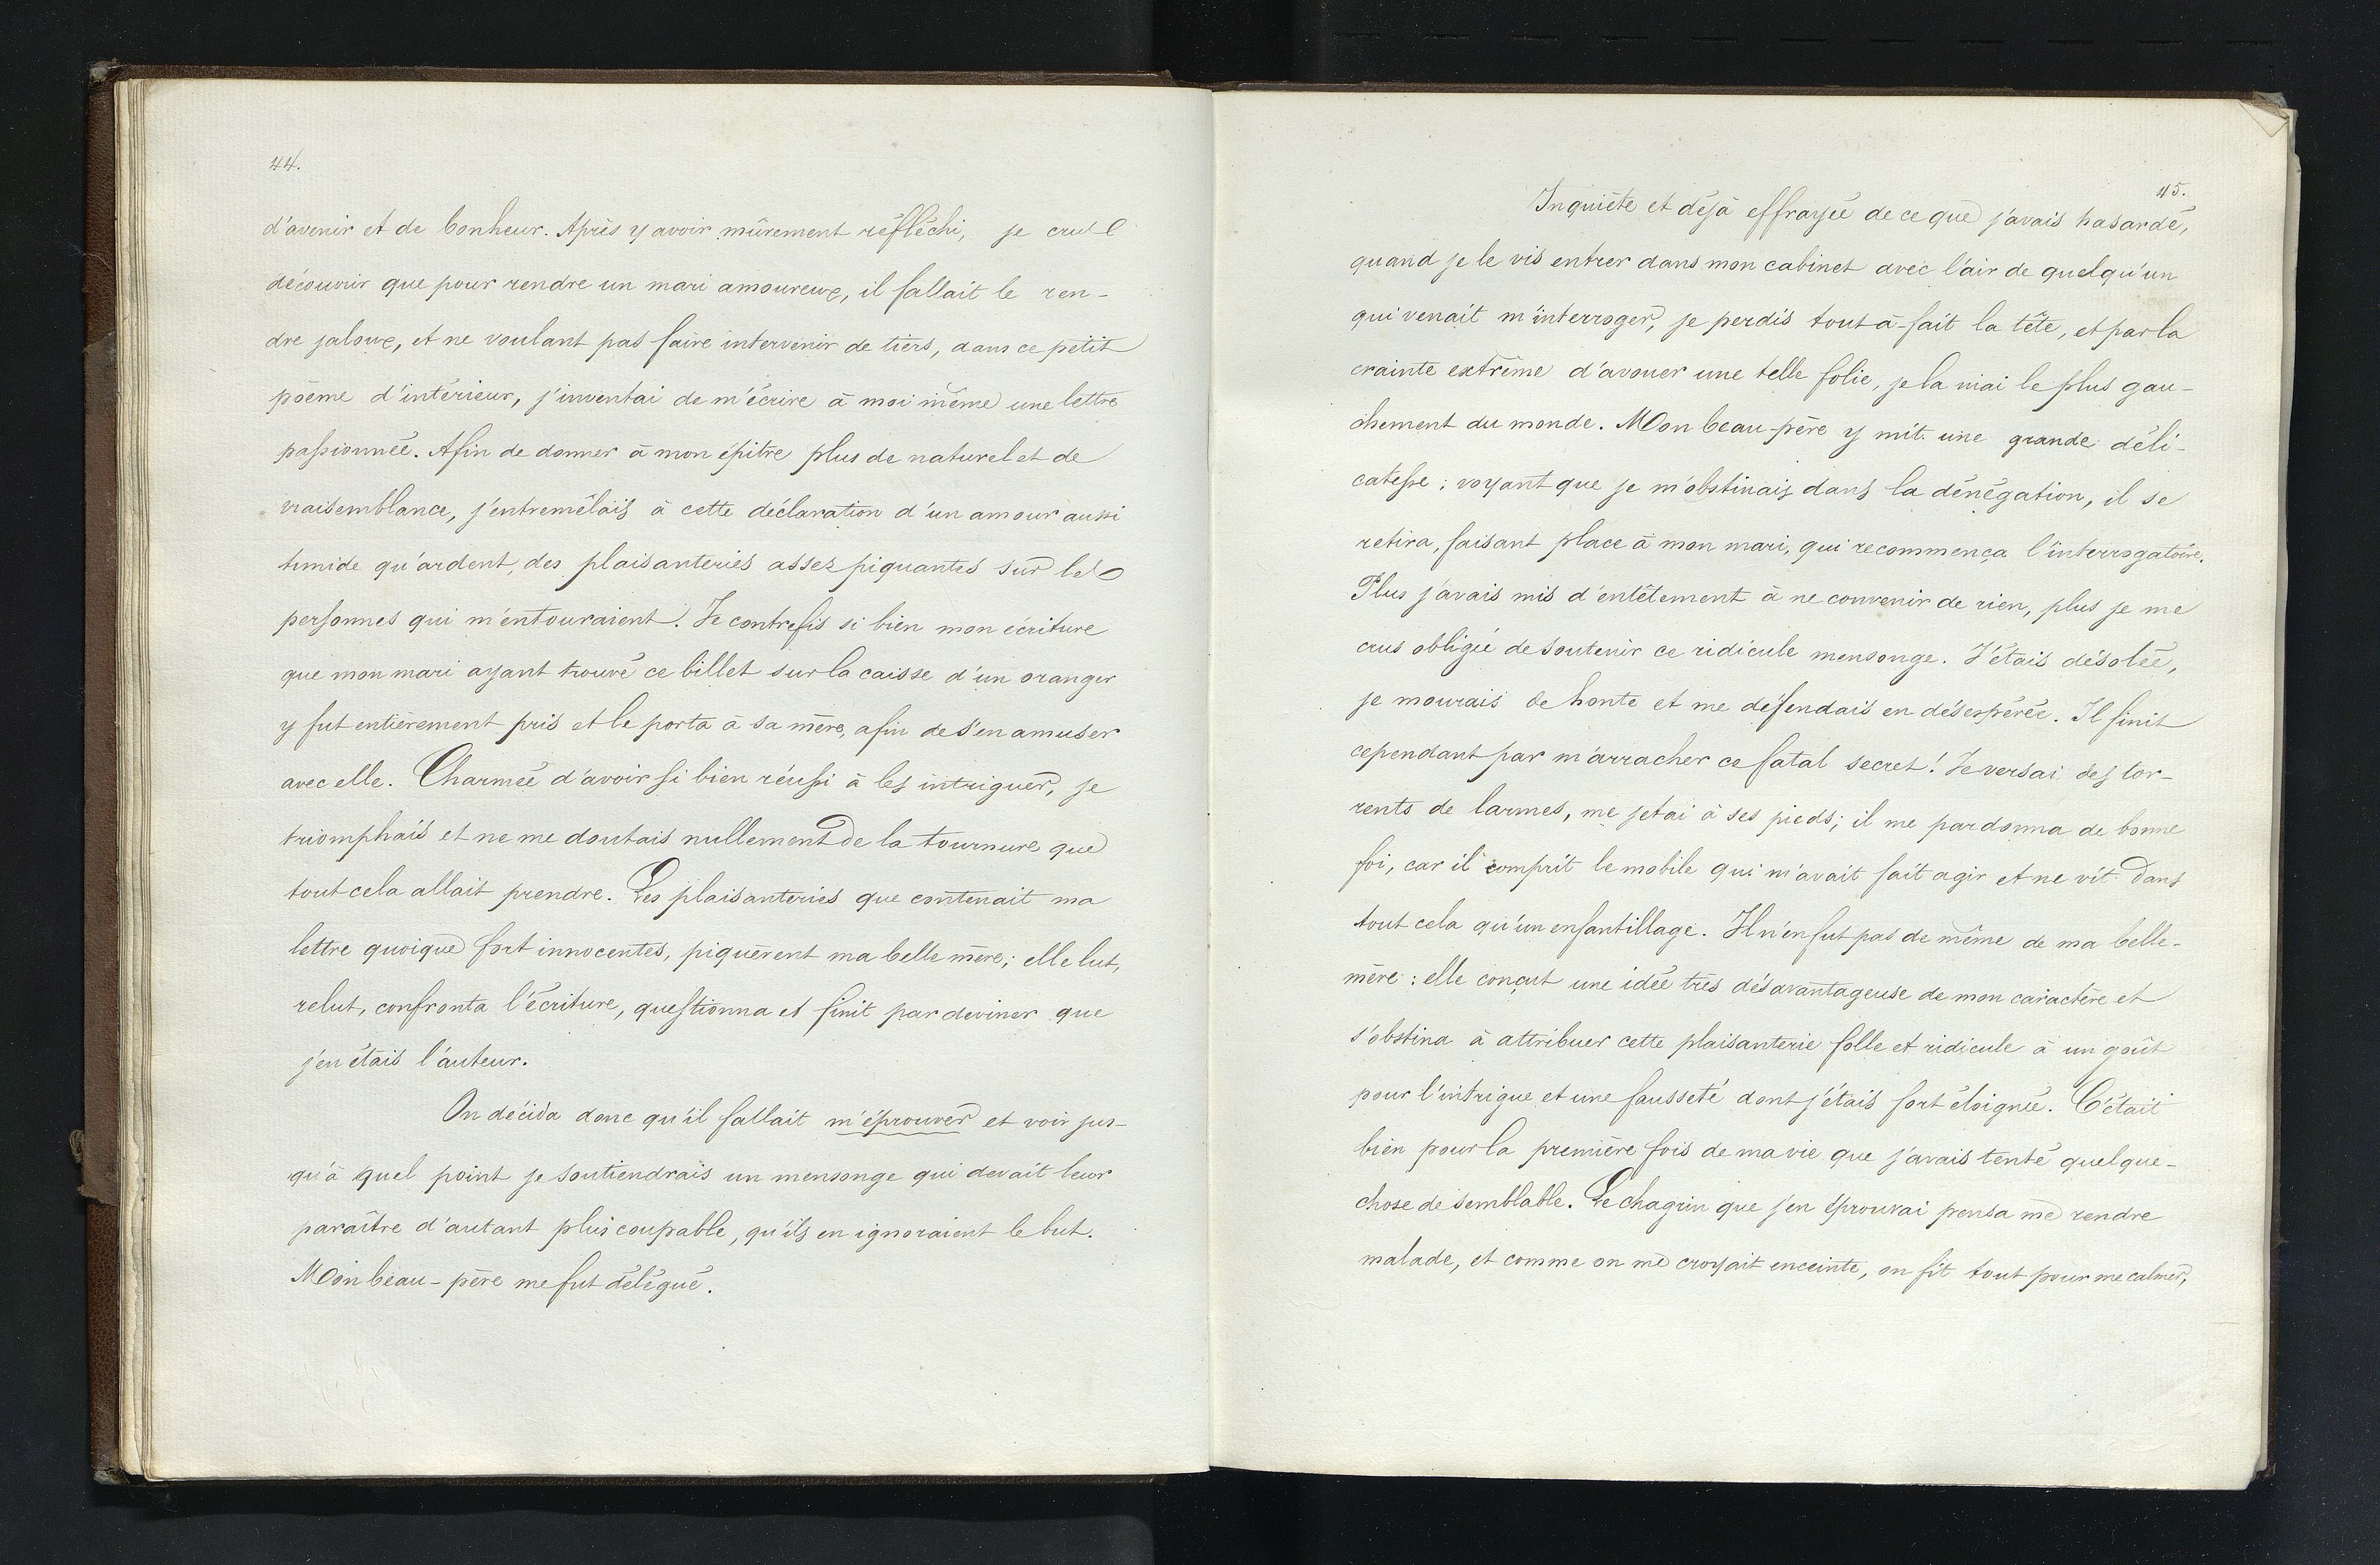 44.
d'avenir et de bonheur. Après y avoir mûrement réfléchi, je crus
découvrir que pour rendre un mari amoureux, il fallait le ren-
dre jaloux, et ne voulant pas faire intervenir de tiers, dans ce petit
poëme d'intérieur, j'inventai de m'écrire à moi même une lettre
passionnée. Afin de donner à mon épitre plus de naturel et de
vraisemblance, j'entremêlais à cette déclaration d'un amour aussi
timide qu'ardent, des plaisanteries assez piquantes sur les
personnes qui m'entouraient. Je contrefis si bien mon écriture
que mon mari ayant trouvé ce billet sur la caisse d'un oranger
y fut entièrement pris et le porta à sa mère, afin de s'en amuser
avec elle. Charmée d'avoir si bien réussi à les intriguer, je
triomphais et ne me doutais nullement de la tournure que
tout cela allait prendre. Les plaisanteries que contenait ma
lettre quoique fort innocentes, piquèrent ma belle mère; elle lut,
relut, confronta l'écriture, questionna et finit par deviner que
j'en étais l'auteur.
On décida donc qu'il fallait m'éprouver et voir jus-
qu'à quel point je soutiendrais un mensonge qui devait leur
paraître d'autant plus coupable, qu'ils en ignoraient le but.
Mon beau-père me fut délégué.
45.
Inquiète et déjà effrayée de ce que j'avais hasardé,
quand je le vis entrer dans mon cabinet avec l'air de quelqu'un
qui venait m'interroger, je perdis tout-à-fait la tête, et par la
crainte extrême d'avouer une telle folie, je la niai le plus gau-
chement du monde. Mon beau-père y mit une grande déli-
catesse; voyant que je m'obstinais dans la dénégation, il se
retira, faisant place à mon mari, qui recommença l'interrogatoire.
Plus j'avais mis d'entêtement à ne convenir de rien, plus je me
crus obligée de soutenir ce ridicule mensonge. J'étais désolée,
je mourais de honte et me défendais en désespérée. Il finit
cependant par m'arracher ce fatal secret! Je versai des tor-
rents de larmes, me jetai à ses pieds; il me pardonna de bonne
foi, car il comprit le mobile qui m'avait fait agir et ne vit dans
tout cela qu'un enfantillage. Il n'en fut pas de même de ma belle-
mère: elle conçut une idée très désavantageuse de mon caractère et
s'obstina à attribuer cette plaisanterie folle et ridicule à un goût
pour l'intrigue et une fausseté dont j'étais fort éloignée. C'était
bien pour la première fois de ma vie que j'avais tenté quelque-
chose de semblable. Le chagrin que j'en éprouvai pensa me rendre
malade, et comme on me croyait enceinte, on fit tout pour me calmer,